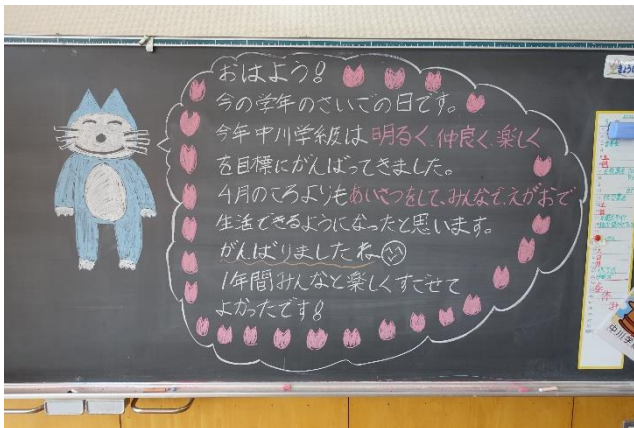 おはよう!
今の学年のさいごの日です。
今年中川学級は明るく、仲良く、楽しく
を目標にがんばってきました。
4月のころよりもあいさつをして、みんなで、えがおで
生活できるようになったと思います。
がんばりましたね
1年間みんなと楽しくすごせて
よかったです!
中川学